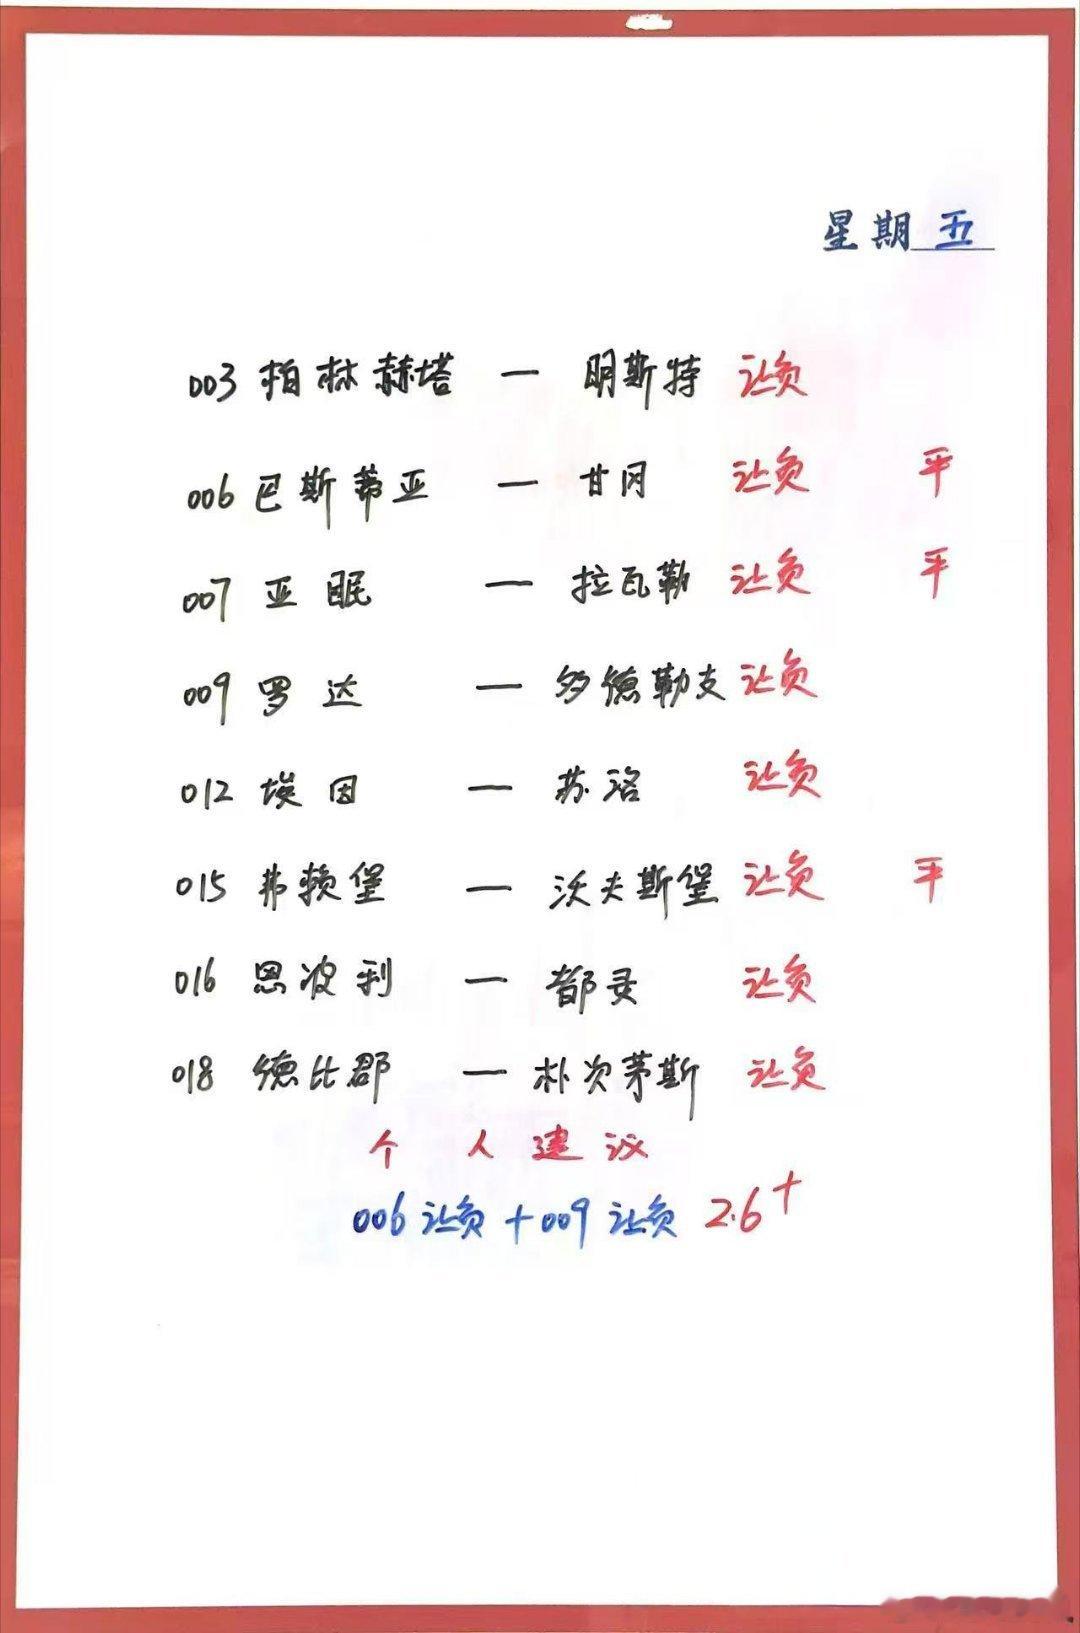 星期五
003 柏林赫塔 — 明斯特 让负
006 巴斯蒂亚 — 甘冈 让负 平
007 亚眠 — 拉瓦勒 让负 平
009 罗达 — 多德勒支 让负
012 埃因 — 苏洛 让负
015 弗赖堡 — 沃夫斯堡 让负 平
016 恩波利 — 都灵 让负
018 德比郡 — 朴次茅斯 让负
个人建议
006 让负 + 009 让负 2.6+